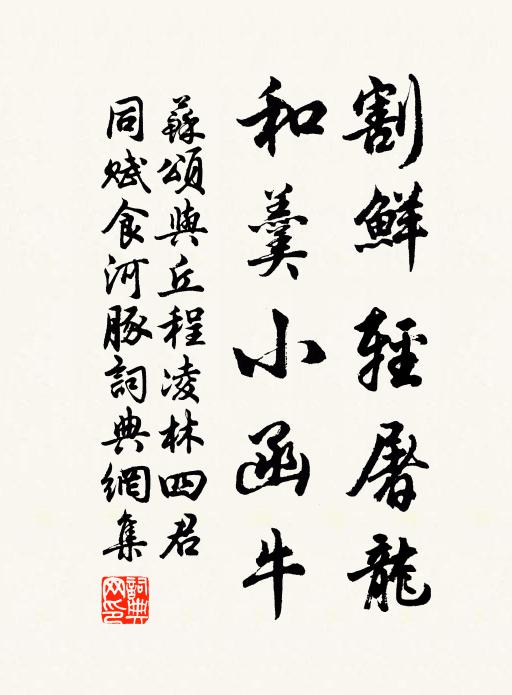 割鮮輕屠龍
和羹小函牛
蘇頌與丘程凌林四君
同賦食河豚詞典網集
詞典網印